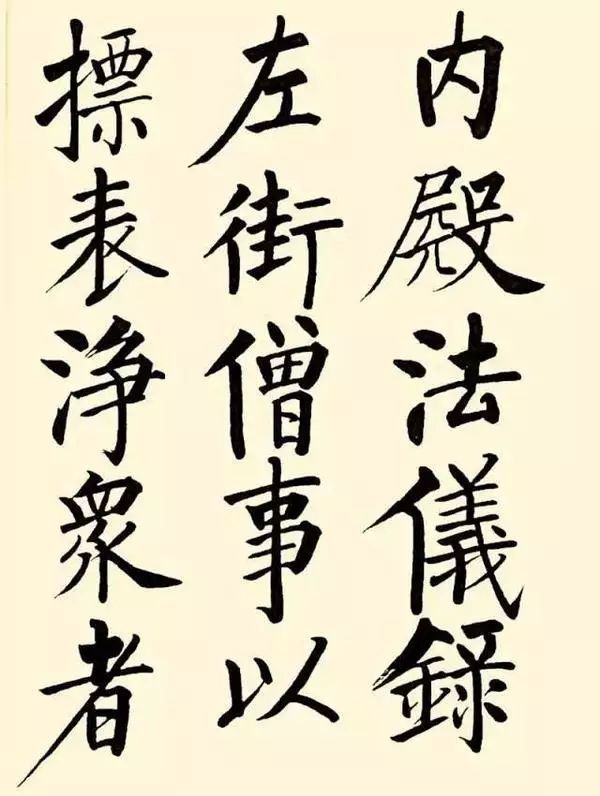 内殿法儀錄
左街僧事以
摽表淨衆者